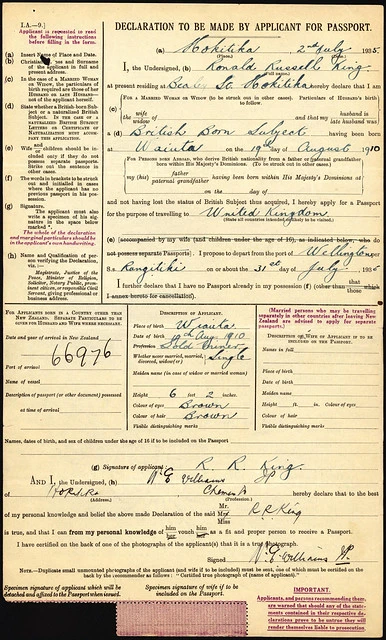 I.A.—9.]
DECLARATION TO BE MADE BY APPLICANT FOR PASSPORT.
Applicant is requested to read the following instructions before filling in the form.
(a) Insert Name of Place and Date.
(b) Christian Names and Surname of the applicant in full and present address.
(c) In the case of a Married Woman or Widow, the particulars of birth required are those of her Husband or Late Husband—not of the applicant herself.
(d) State whether a British-born Subject or a naturalized British Subject.
(e) Wife and/or children should be included only if they do not possess separate Passports. Strike out the sentence in other cases.
(f) The words in brackets to be struck out and initialled in cases where the applicant has no previous passport in his possession.
(g) Signature.
The applicant must also write a specimen of his signature in the space below marked *.
The whole of the declaration and marginal particulars should be in the applicant's own handwriting.
(h) Name and Qualification of person verifying the Declaration, viz.:—
Magistrate, Justice of the Peace, Minister of Religion, Solicitor, Notary Public, prominent citizen, or responsible Civil Servant, giving professional or business address.
(a) Hokitika 2nd July 1935
(Place)
I, the Undersigned, (b) Ronald Russell King
(Full name)
at present residing at Bealey St. Hokitika hereby declare that I am
For a Married Woman or Widow (to be struck out in other cases). Particulars of Husband's birth to follow.
(c) the wife/widow of and that my husband/late husband was
a (d) British Born Subject having been born
at Waiuta on the 19th day of August 1910
For Persons born Abroad, who derive British nationality from a father or paternal grandfather born within His Majesty's Dominions. (To be struck out in other cases.)
my (his) father/paternal grandfather having been born within His Majesty's Dominions at
on the day of
and not having lost the status of British Subject thus acquired, I hereby apply for a Passport
for the purpose of travelling to United Kingdom
(State all countries intended likely to be visited.)
(e) (accompanied by my wife (and children under the age of 16), as indicated below, who do not possess separate Passports). I propose to depart from the port of Wellington
S.s. Rangitiki on or about the 31st day of July 1935
I further declare that I have no Passport already in my possession (f) (other than that/those which I annex hereto for cancellation).
For Applicants born in a Country other than New Zealand. Separate Particulars to be given for Husband and Wife where necessary.
Date and year of arrival in New Zealand
66976
Port of arrival
Name of vessel
Description of passport (or other document) possessed
at time of arrival
Description of Applicant.
Place of birth Waiuta
Date of birth 19th Aug 1910
Profession Gold Miner
Whether married, divorced, widow(er) Single
Maiden name (in case of widow or married woman)
Height 6 feet 2 inches.
Colour of eyes Brown
Colour of hair Brown
Visible distinguishing marks
(Married persons who may be travelling separately in other countries after leaving New Zealand are advised to apply for separate passports.)
Description of Wife if included on the Passport.
Names in full
Place of birth
Date of birth
Maiden name
Height ft. in. Colour of
Colour of hair
Visible distinguishing marks
Names, dates of birth, and sex of children under the age of 16 if to be included on the Passport
(g) Signature of applicant: R. R. King.
And I, the Undersigned (h) W E Williams JP
of Hokitika Chemist hereby declare that to the best
(Address) (Profession)
of my personal knowledge and belief the above made Declaration of the said Mr/Mrs/Miss R R King
is true, and that I can from my personal knowledge of him/her vouch him/her as a fit and proper person to receive a Passport.
I have certified on the back of one of the photographs of the applicant(s) that it is a true photograph.
Signed W. E. Williams JP.
Note.—Duplicate small unmounted photographs of the applicant (and wife if to be included) must be sent, one of which must be certified on the back by the recommender as follows: "Certified true photograph of (name of applicant)."
Specimen signature of applicant which will be detached and affixed to the Passport when issued.
Specimen signature of wife if to be included on the Passport.
IMPORTANT.
Applicants, and persons recommending them, are warned that should any of the statements contained in their respective declarations prove to be untrue they will render themselves liable to prosecution.